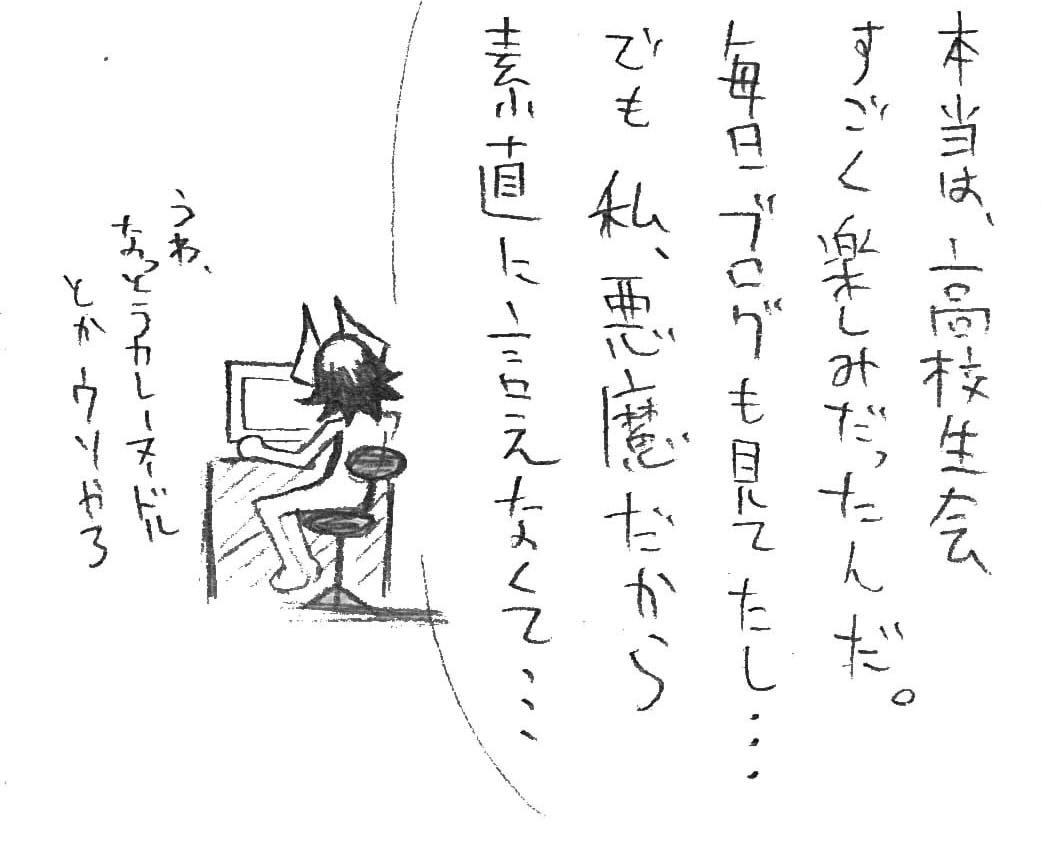 本当は、高校生会
すごく楽しみだったんだ。
毎日ブログも見てたし…
でも私、悪魔だから
素直に言えなくて……
うわ、
なっとうカレーヌードル
とかウソやろ